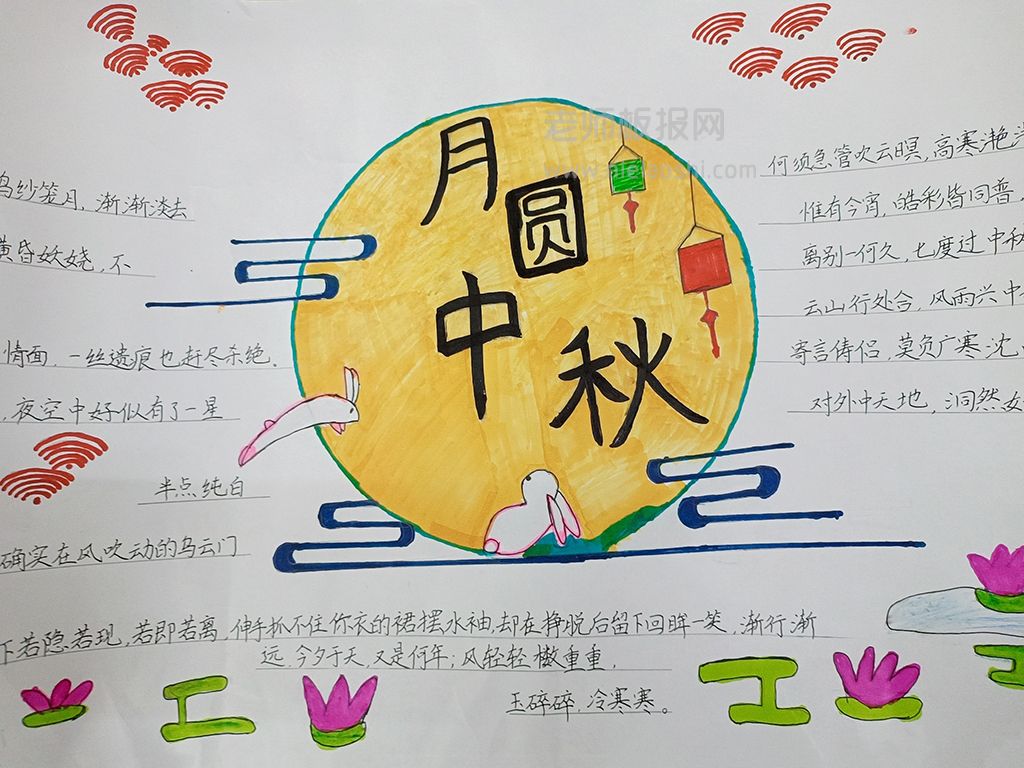 老师板报网
月圆中秋
乌纱笼月,渐渐淡去
黄昏妖娆,不
情面,一丝遗痕也赶尽杀绝.
,夜空中好似有了一星
半点纯白
确实在风吹动的乌云门
下若隐若现,若即若离,伸手抓不住你衣的裙摆水袖,却在挣脱后留下回眸一笑,渐行渐
远,今夕于天,又是何年;风轻轻 重重,
玉碎碎,冷寒寒。
何须急管吹云暝,高寒滟
惟有今宵,皓彩皆同普,
离别一何久,七度过中秋
云山行处合,风雨兴中
寄言俦侣,莫负广寒沈
对外中天地,洞然如